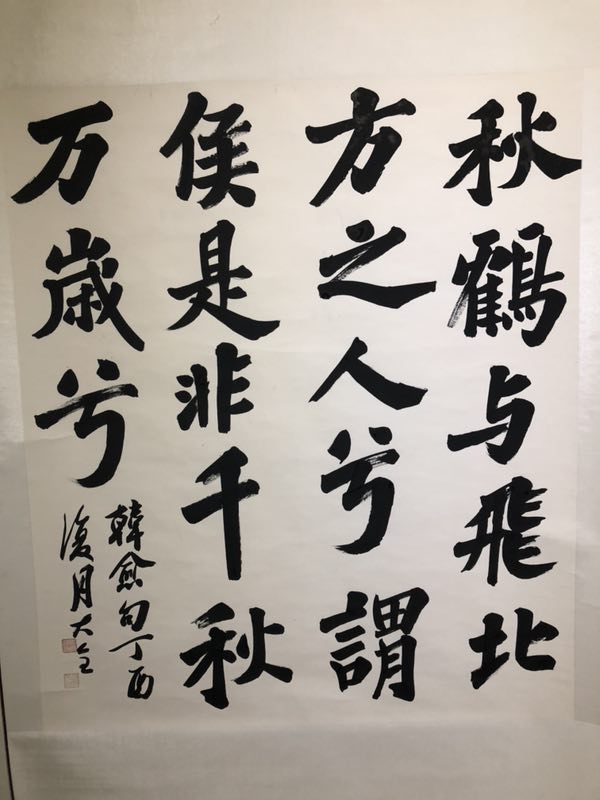 秋鶴与飛北
方之人兮謂
侯是非千秋
万歳兮
韓愈句丁酉
月大